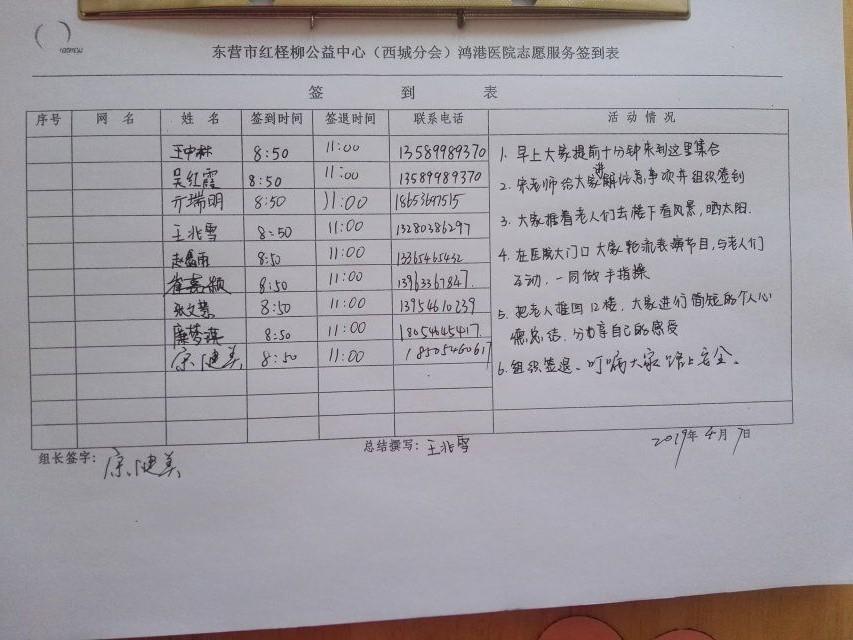 东营市红柽柳公益中心（西城分会）鸿港医院志愿服务签到表
签 到 表
序号 网 名 姓 名 签到时间 签退时间 联系电话 活 动 情 况
王中林 8:50 11:00 13589989370
吴红霞 8:50 11:00 13589989370
亓瑞明 8:50 11:00 18653697515
王兆雪 8:50 11:00 13280386297
8:50 11:00 13365465432
崔嘉颖 8:50 11:00 13963367847
张文慧 8:50 11:00 13954610239
8:50 11:00 18054645417
宗健美 8:50 11:00 18505460617
1. 早上大家提前十分钟来到这里集合
2. 宋老师给大家讲解注意事项并组织签到
3. 大家推着老人们去楼下看风景，晒太阳.
4. 在医院大门口大家轮流表演节目，与老人们
互动，一同做手指操
5. 把老人推回12楼，大家进行简短的个人心
愿总结，分享自己的感受
6. 组织签退、叮嘱大家路上安全。
组长签字： 宗健美
总结撰写： 王兆雪
2019年4月7日